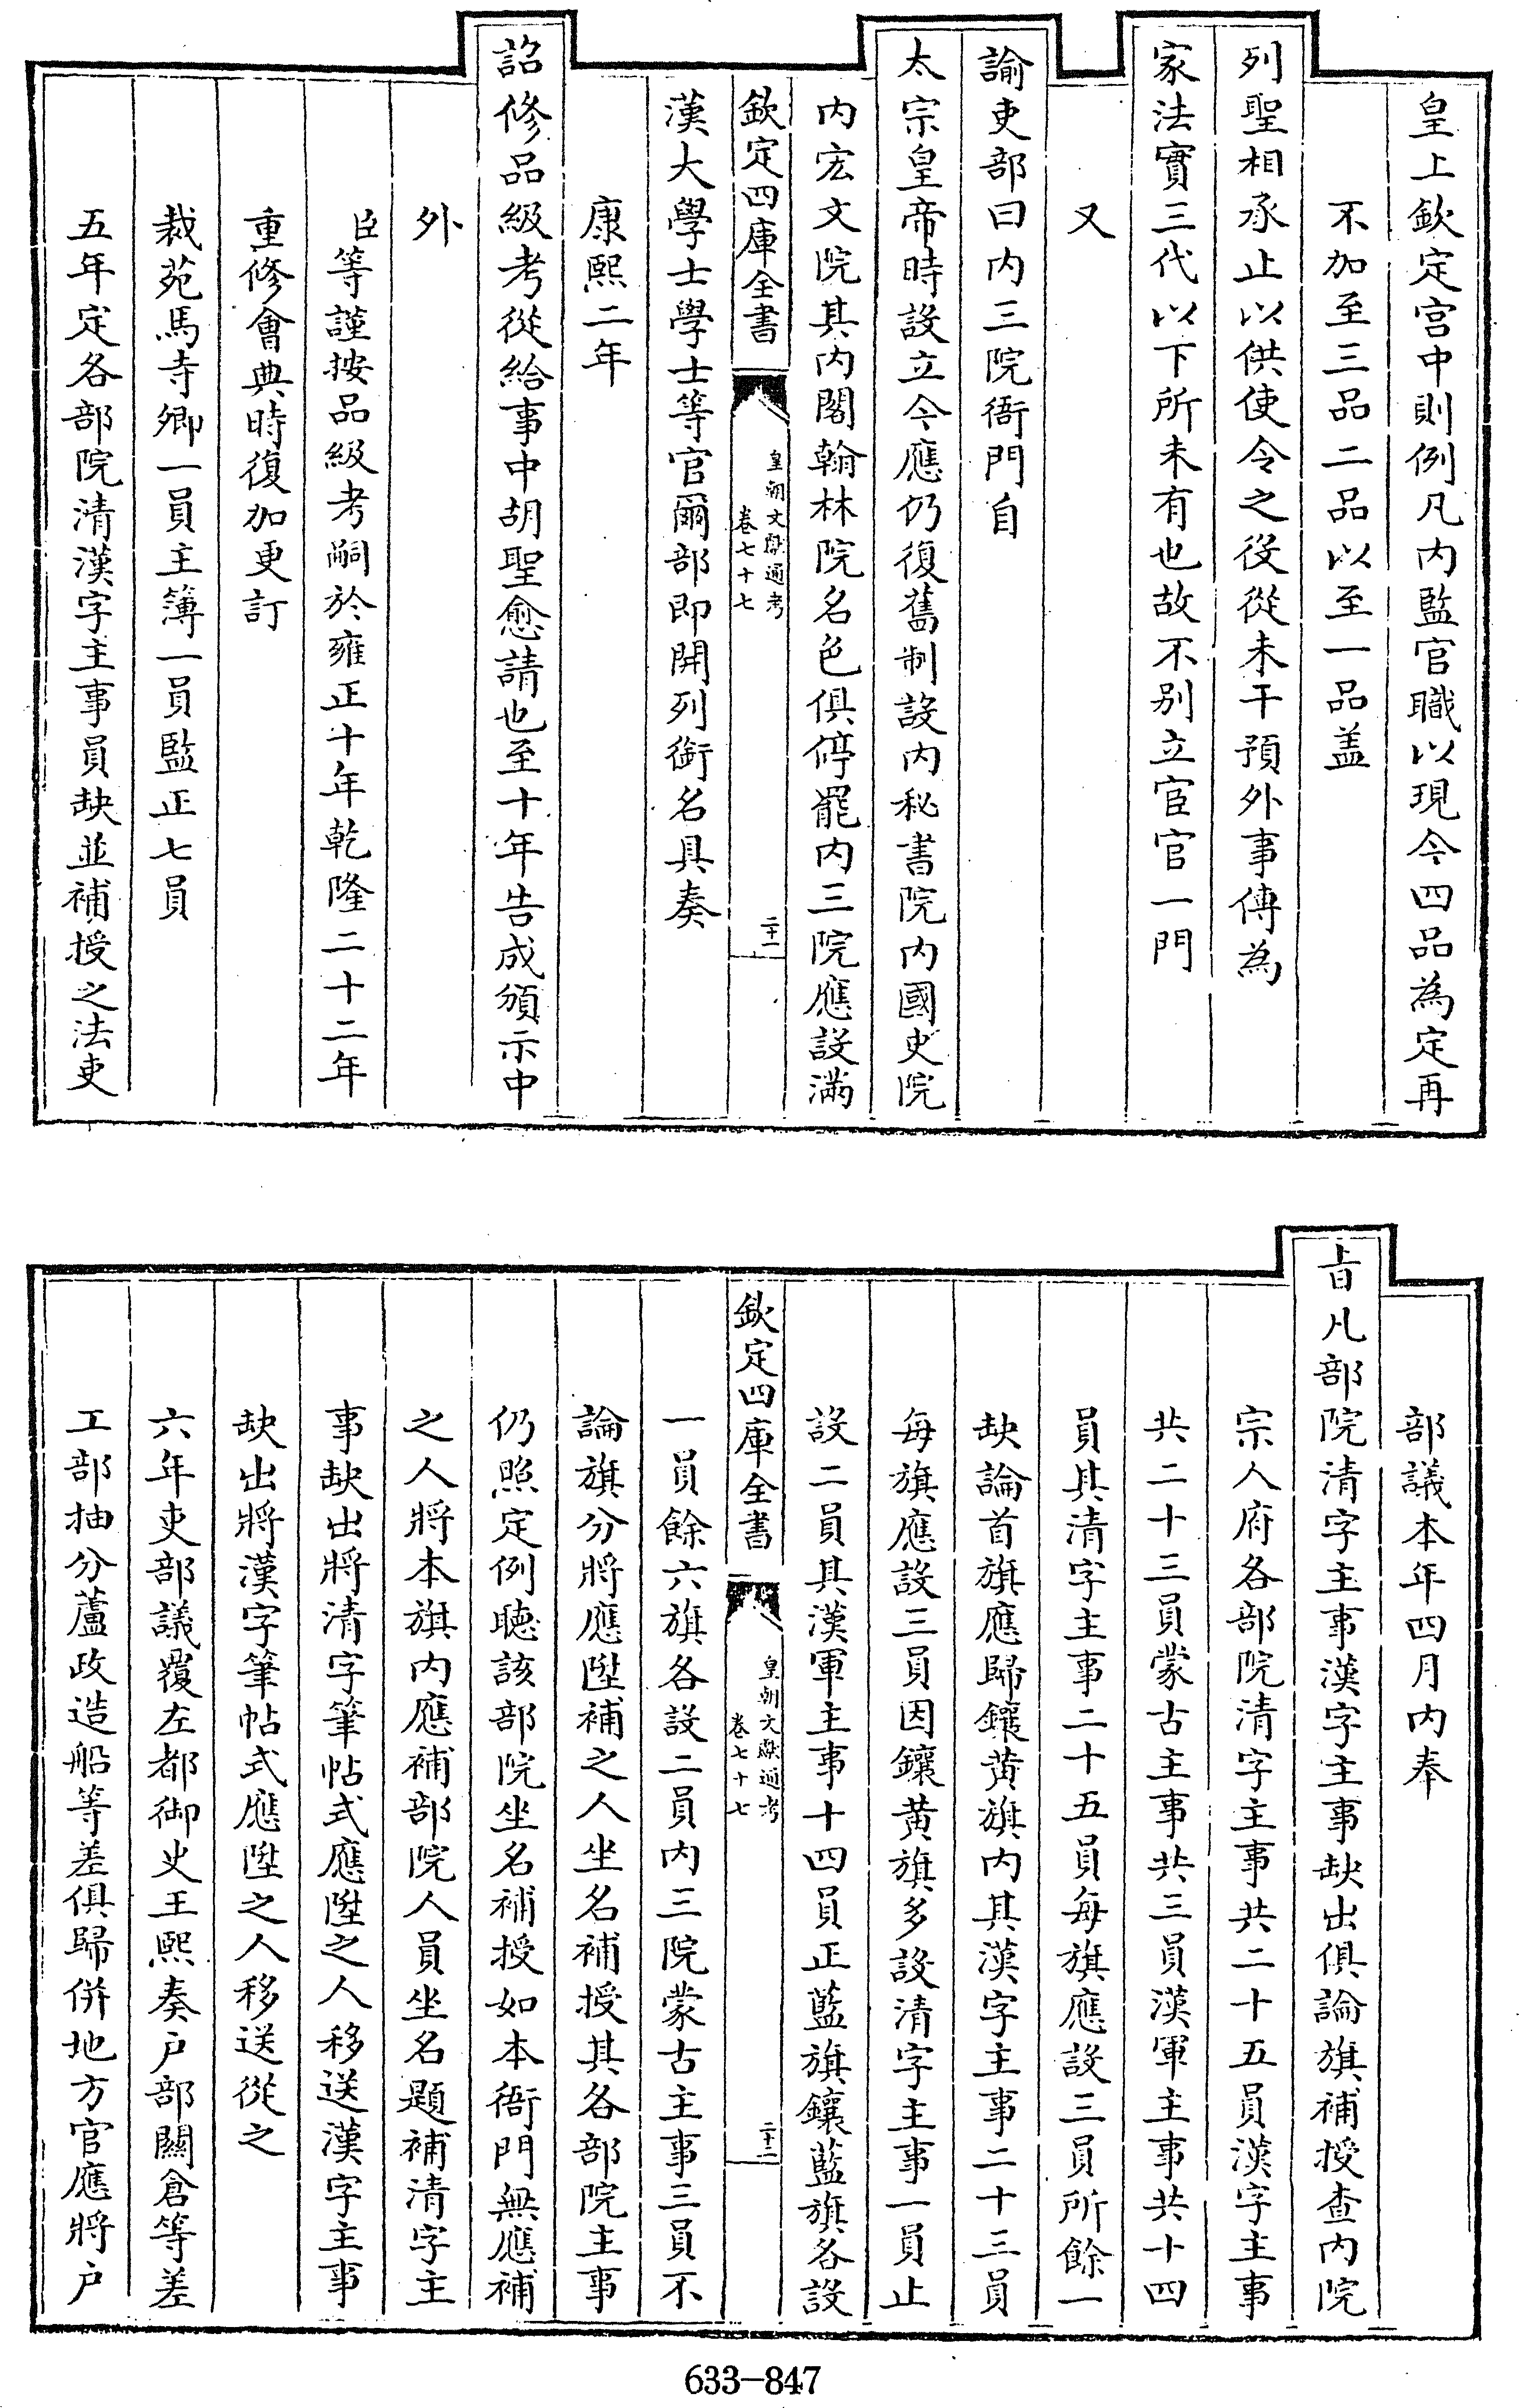 皇上欽定宫中則例凡内監官職以現今四品為定再
不加至三品二品以至一品盖
列聖相承止以供使令之役從未干預外事傳為
家法實三代以下所未有也故不别立宦官一門
又
諭吏部曰内三院衙門自
太宗皇帝時設立今應仍復舊制設内秘書院内國史院
内宏文院其内閣翰林院名色俱停罷内三院應設滿
欽定四庫全書
皇朝文獻通考
卷七十七
二十一
漢大學士學士等官爾部即開列銜名具奏
康熙二年
詔修品級考從給事中胡聖愈請也至十年告成頒示中
外
臣等謹按品級考嗣於雍正十年乾隆二十二年
重修會典時復加更訂
裁苑馬寺卿一員主簿一員監正七員
五年定各部院清漢字主事員缺並補授之法吏
部議本年四月内奉
上㫖凡部院清字主事漢字主事缺出俱論旗補授查内院
宗人府各部院清字主事共二十五員漢字主事
共二十三員蒙古主事共三員漢軍主事共十四
員其清字主事二十五員每旗應設三員所餘一
缺論首旗應歸鑲黄旗内其漢字主事二十三員
每旗應設三員因鑲黄旗多設清字主事一員止
設二員其漢軍主事十四員正藍旗鑲藍旗各設
欽定四庫全書
皇朝文獻通考
卷七十七
二十二
一員餘六旗各設二員内三院蒙古主事三員不
論旗分將應陞補之人坐名補授其各部院主事
仍照定例聴該部院坐名補授如本衙門無應補
之人將本旗内應補部院人員坐名題補清字主
事缺出將清字筆帖式應陞之人移送漢字主事
缺出將漢字筆帖式應陞之人移送從之
六年吏部議覆左都御史王熙奏户部關倉等差
工部抽分蘆政造船等差俱歸併地方官應將户
633-847